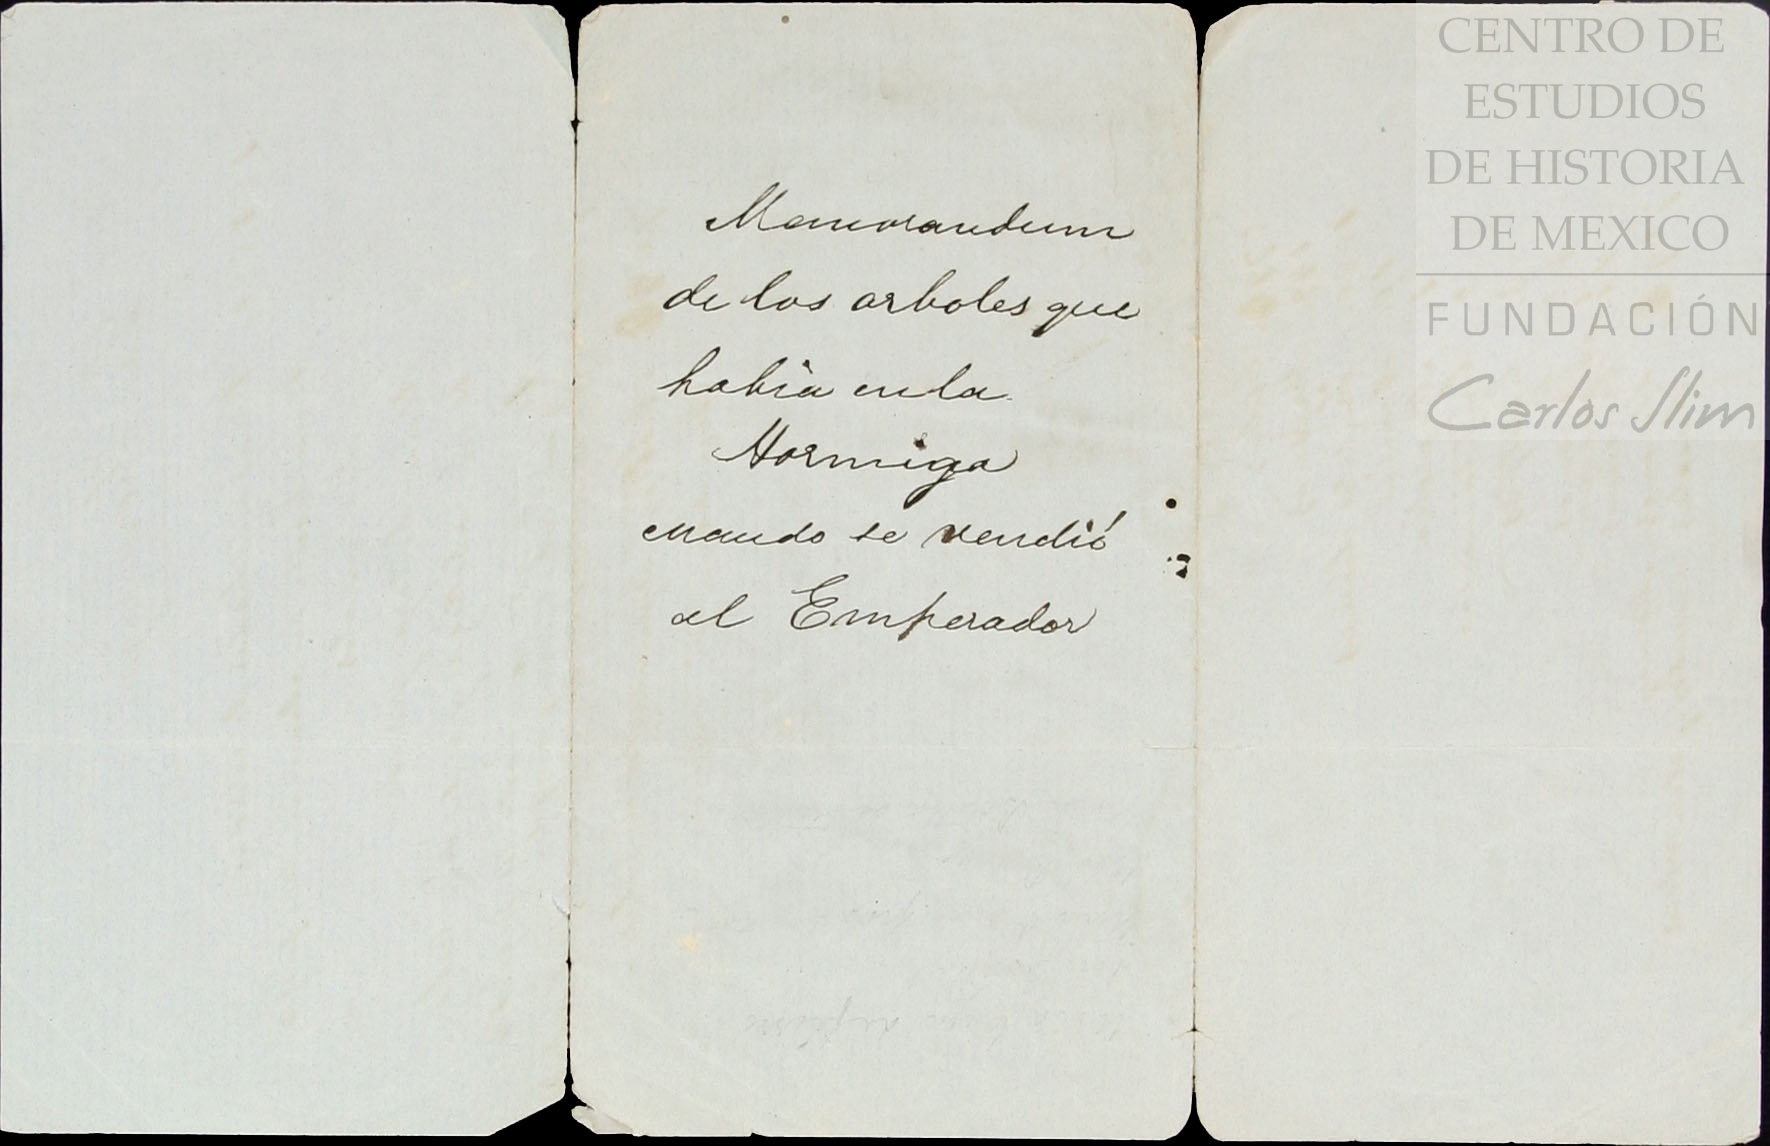 Memorandum
de los arboles que
había en la
Hormiga
cuando se vendió
al Emperador
CENTRO DE
ESTUDIOS
DE HISTORIA
DE MEXICO
FUNDACIÓN
Carlos Slim